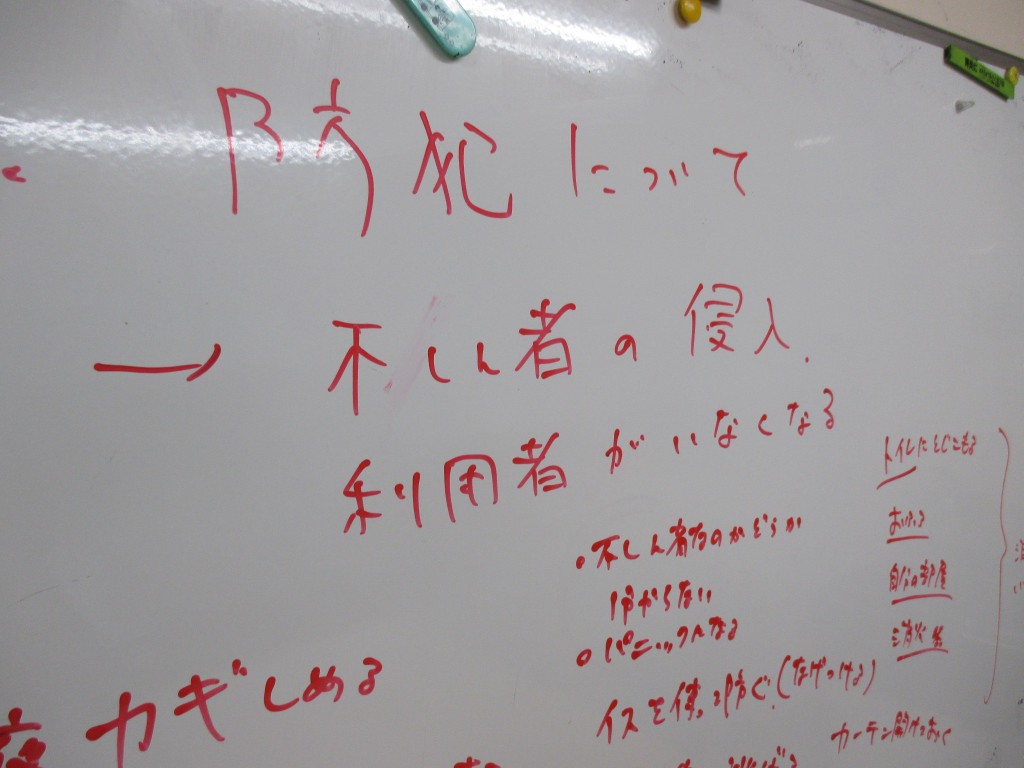 防犯について
不しん者の侵入.
利用者がいなくなる
・不しん者なのかどうか
わからない
・パニックになる
イスを使って防ぐ.(なげつける)
カギしめる
トイレにとじこもる
おふろ
自分の部屋
消火器
カーテン開けておく